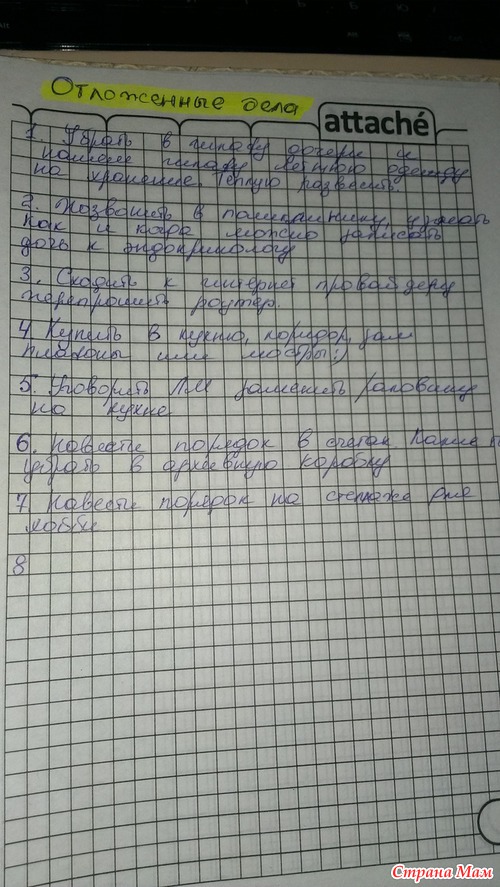 Отложенные дела
attaché
1. Убрать в шкафу дочери и
нашем шкафу летнюю одежду
на хранение. Теплую развесить.
2. Позвонить в поликлинику, узнать
как и когда можно записать
дочь к эндокринологу
3. Сходить к интернет провайдеру
перепрошить роутер.
4 Купить в кухню, коридор, зал
плафоны или люстры:)
5. Уговорить ЛМ заменить раковину
на кухне
6. Навести порядок в счетах
убрать в архивную коробку
7 Навести порядок на стеллаже для
хобби
8
Страна Мам